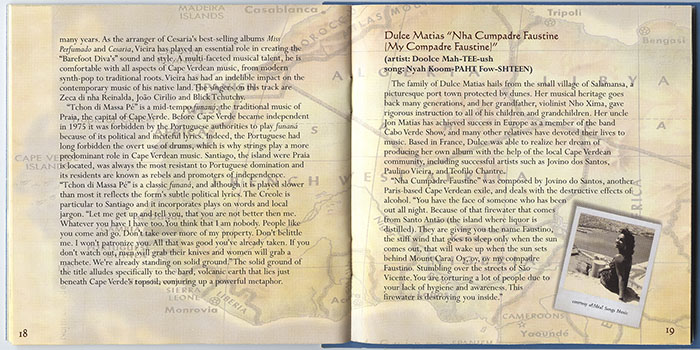 many years. As the arranger of Cesaria's best-selling albums Miss
Perfumado and Cesaria, Vieira has played an essential role in creating the
"Barefoot Diva's" sound and style. A multi-faceted musical talent, he is
comfortable with all aspects of Cape Verdean music, from modern
synth-pop to traditional roots. Vieira has had an indelible impact on the
contemporary music of his native land. The singer on this track are
Zeca di nha Reinalda, João Cirilio and Blick Tchutchy.
"Tchon di Massa Pé" is a mid-tempo funaná, the traditional music of
Praia, the capital of Cape Verde. Before Cape Verde became independent
in 1975 it was forbidden by the Portuguese authorities to play funaná
because of its political and meneful lyrics. Indeed, the Portuguese had
long forbidden the overt use of drums, which is why strings play a more
predominant role in Cape Verdean music. Santiago, the island were Praia
is located, was always the most resistant to Portuguese domination and
its residents are known as rebels and promoters of independence.
"Tchon di Massa Pé" is a classic funaná, and although it is played slower
than most it reflects the form's subtle political lyrics. The Creole is
particular to Santiago and it incorporates plays on words and local
jargon. "Let me get up and tell you, that you are not better then me.
Whatever you have I have too. You think that I am nobody. People like
you come and go. Don't take over more of my property. Don't belittle
me. I won't patronize you. All that was good you've already taken. If you
don't watch out, men will grab their knives and women will grab a
machete. We're already standing on solid ground." The solid ground of
the title alludes specifically to the hard, volcanic earth that lies just
beneath Cape Verde's topsoil, conjuring up a powerful metaphor.
18
MADEIRA
ISLANDS
Casablanca
CAPE VERD
ISLANDS
SIERRA
LEONE
Monrovia
LIBERIA
Dulce Matias "Nha Cumpadre Faustine
(My Compadre Faustine)"
(artist: Doolce Mah-TEE-ush
song: Nyah Koom-PAHT Fow-SHTEEN)
The family of Dulce Matias hails from the small village of Salamansa, a
picturesque port town protected by dunes. Her musical heritage goes
back many generations, and her grandfather, violinist Nho Xima, gave
rigorous instruction to all of his children and grandchildren. Her uncle
Jon Matias has achieved success in Europe as a member of the band
Cabo Verde Show, and many other relatives have devoted their lives to
music. Based in France, Dulce was able to realize her dream of
producing her own album with the help of the local Cape Verdean
community, including successful artists such as Jovino dos Santos,
Paulino Vieira, and Teofilo Chantre.
"Nha Cumpadre Faustine" was composed by Jovino do Santos, another
Paris-based Cape Verdean exile, and deals with the destructive effects of
alcohol. "You have the face of someone who has been
out all night. Because of that firewater that comes
from Santo Antão (the island where liquor is
distilled). They are giving you the name Faustino,
the stiff wind that goes to sleep only when the sun
comes out, that will wake up when the sun sets
behind Mount Cara. Oy, oy, oy my compafre
Faustino. Stumbling over the streets of São
Vicente. You are torturing a lot of people due to
your lack of hygiene and awareness. This
firewater is destroying you inside."
courtesy of Mad Songs Music
19
Tripoli
Bengasi
CAMEROONS
Yaoundé